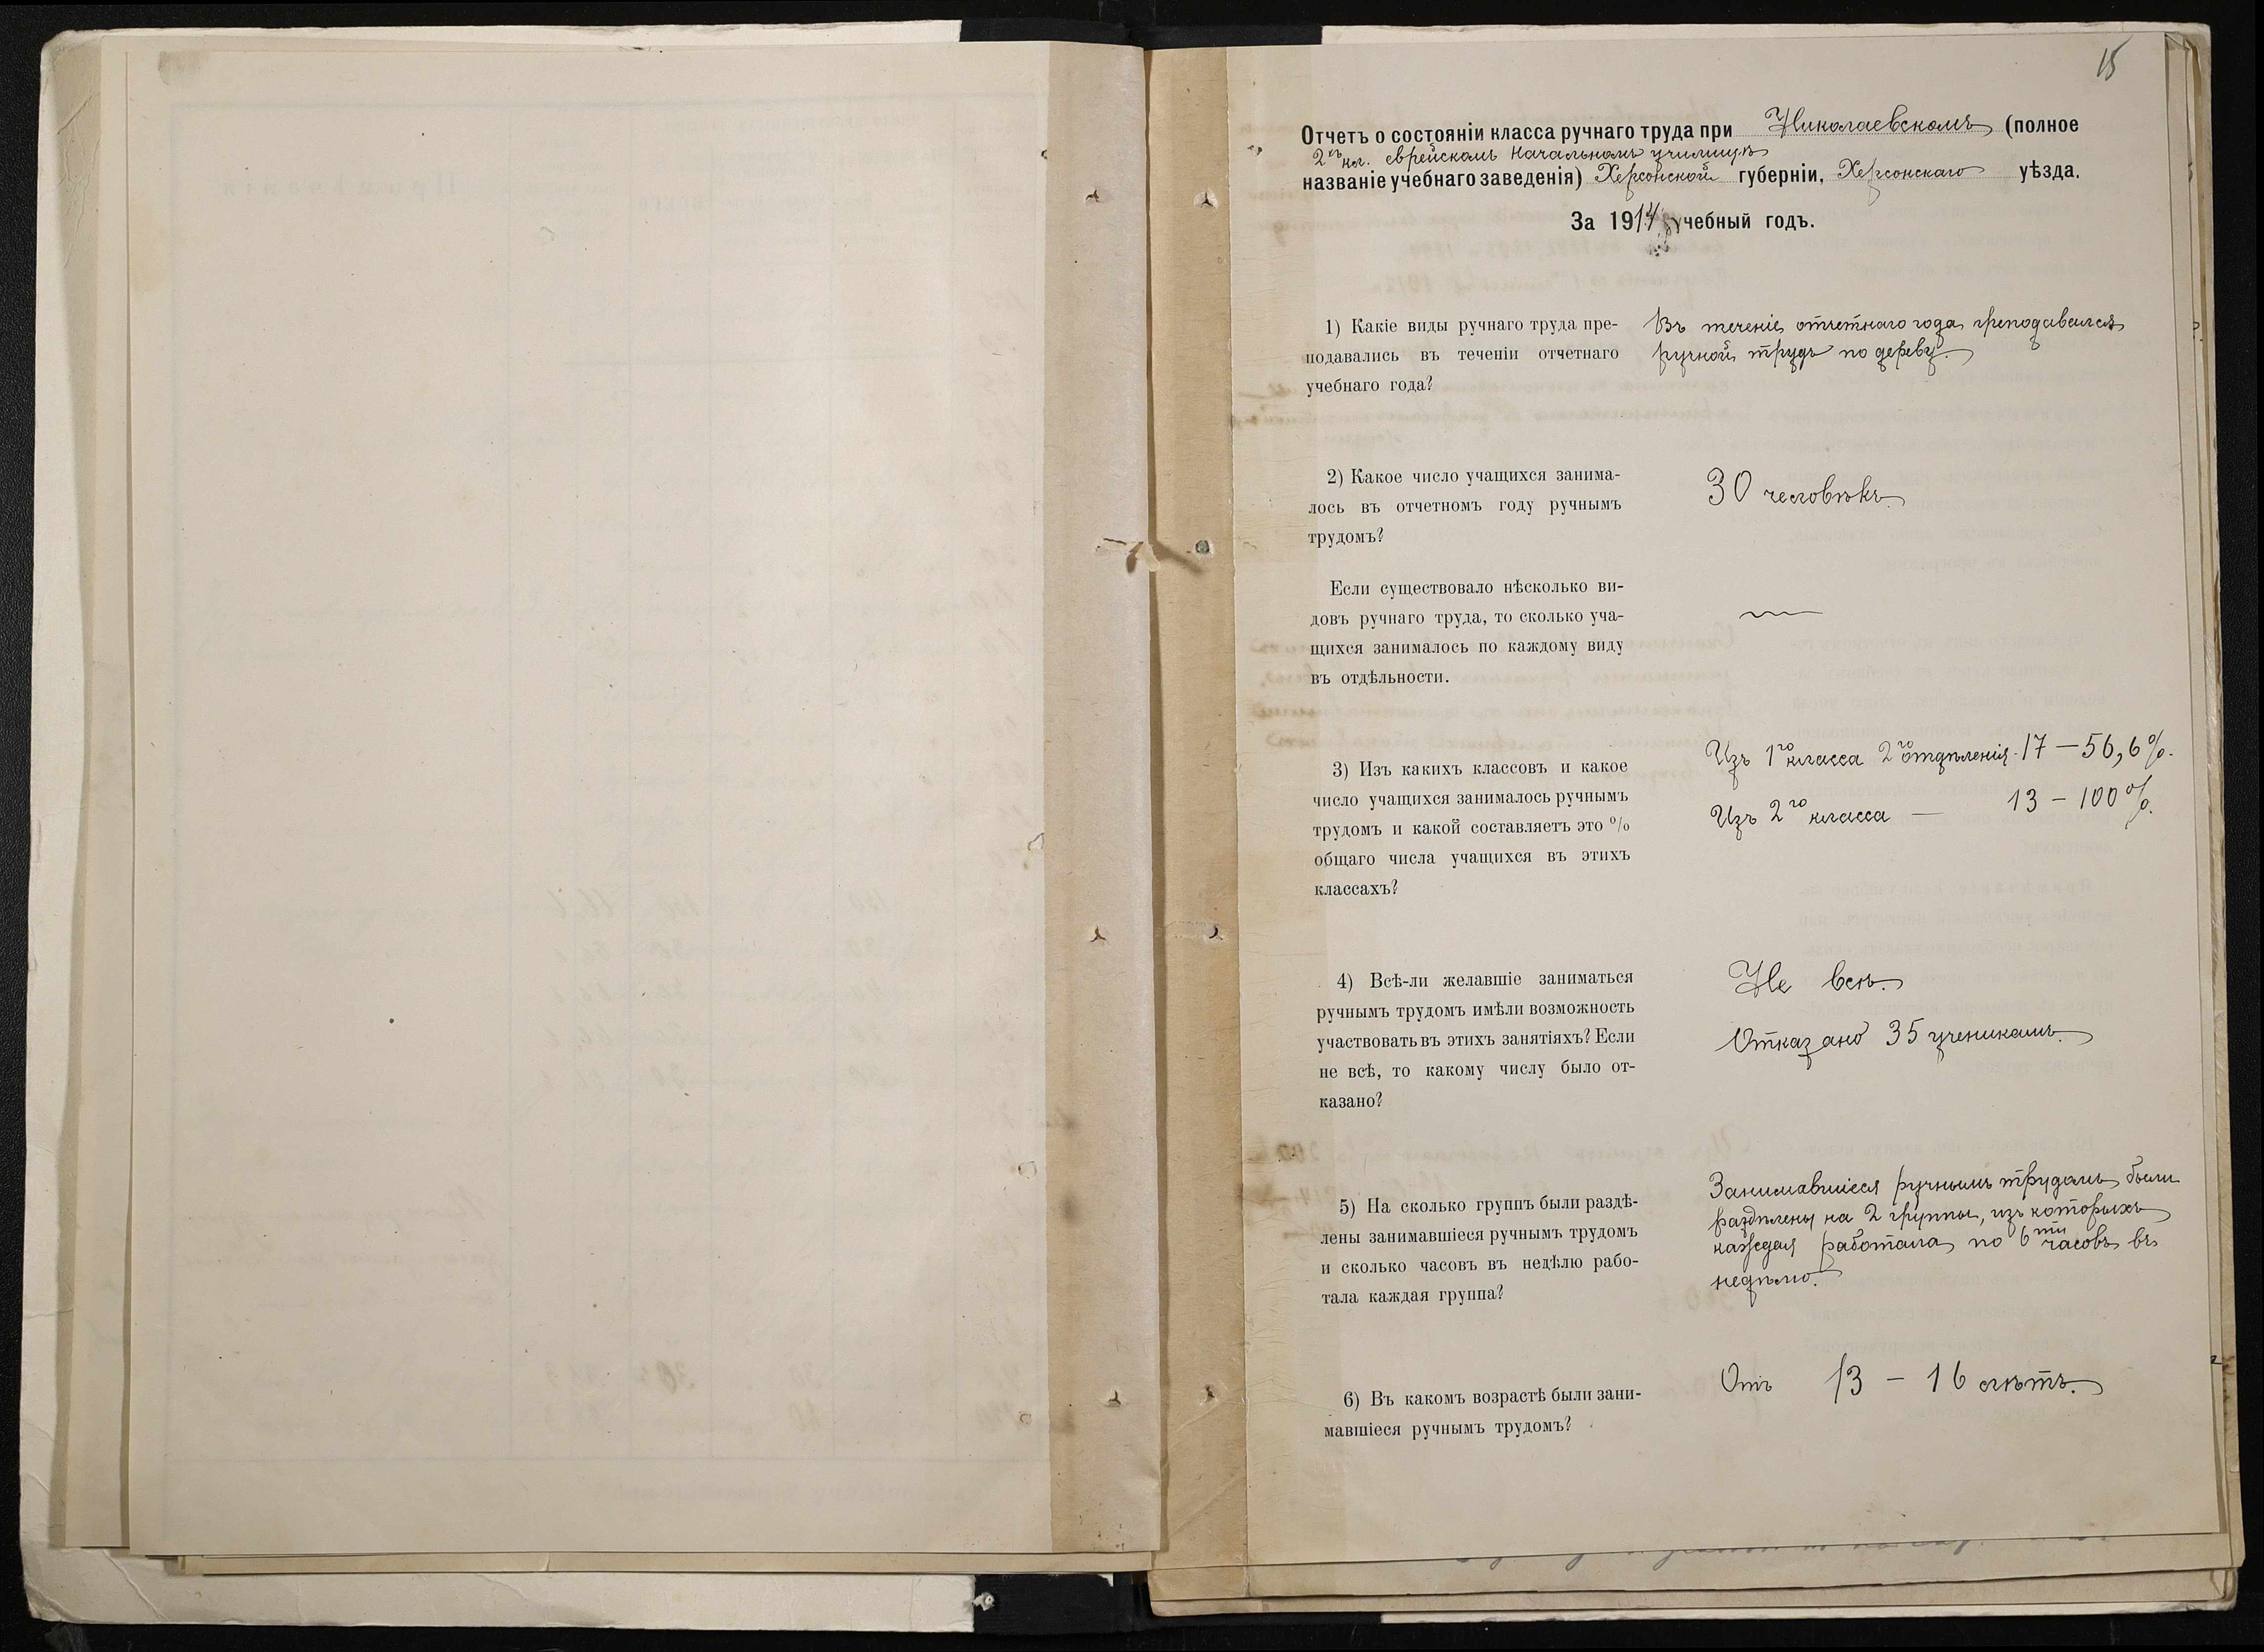 15
Отчетъ о состояніи класса ручнаго труда при Николаевскомъ (полное
2хъ кл. еврейскомъ начальномъ училищѣ
названіе учебнаго заведенія) Херсонской губерніи, Херсонскаго уѣзда.
За 1914 учебный годъ.
1) Какіе виды ручнаго труда пре-
подавались въ теченіи отчетнаго
учебнаго года?
Въ теченіе отчетнаго года преподавался
ручной трудъ по дереву.
2) Какое число учащихся занима-
лось въ отчетномъ году ручнымъ
трудомъ?
30 человѣкъ.
Если существовало нѣсколько ви-
довъ ручнаго труда, то сколько уча-
щихся занималось по каждому виду
въ отдѣльности.
—
3) Изъ какихъ классовъ и какое
число учащихся занималось ручнымъ
трудомъ и какой составляетъ это %
общаго числа учащихся въ этихъ
классахъ?
Изъ 1го класса 2го отдѣленія - 17 — 56,6%.
Изъ 2го класса — 13 — 100%.
4) Всѣ-ли желавшіе заниматься
ручнымъ трудомъ имѣли возможность
участвовать въ этихъ занятіяхъ? Если
не всѣ, то какому числу было от-
казано?
Не всѣ.
Отказано 35 ученикамъ.
5) На сколько группъ были раздѣ-
лены занимавшіеся ручнымъ трудомъ
и сколько часовъ въ недѣлю рабо-
тала каждая группа?
Занимавшіеся ручнымъ трудомъ были
раздѣлены на 2 группы, изъ которыхъ
каждая работала по 6ти часовъ въ
недѣлю.
6) Въ какомъ возрастѣ были зани-
мавшіеся ручнымъ трудомъ?
Отъ 13 — 16 лѣтъ.